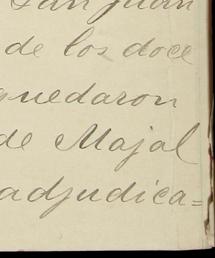 San Juan
de los doce
quedaron
de Majal
adjudica=